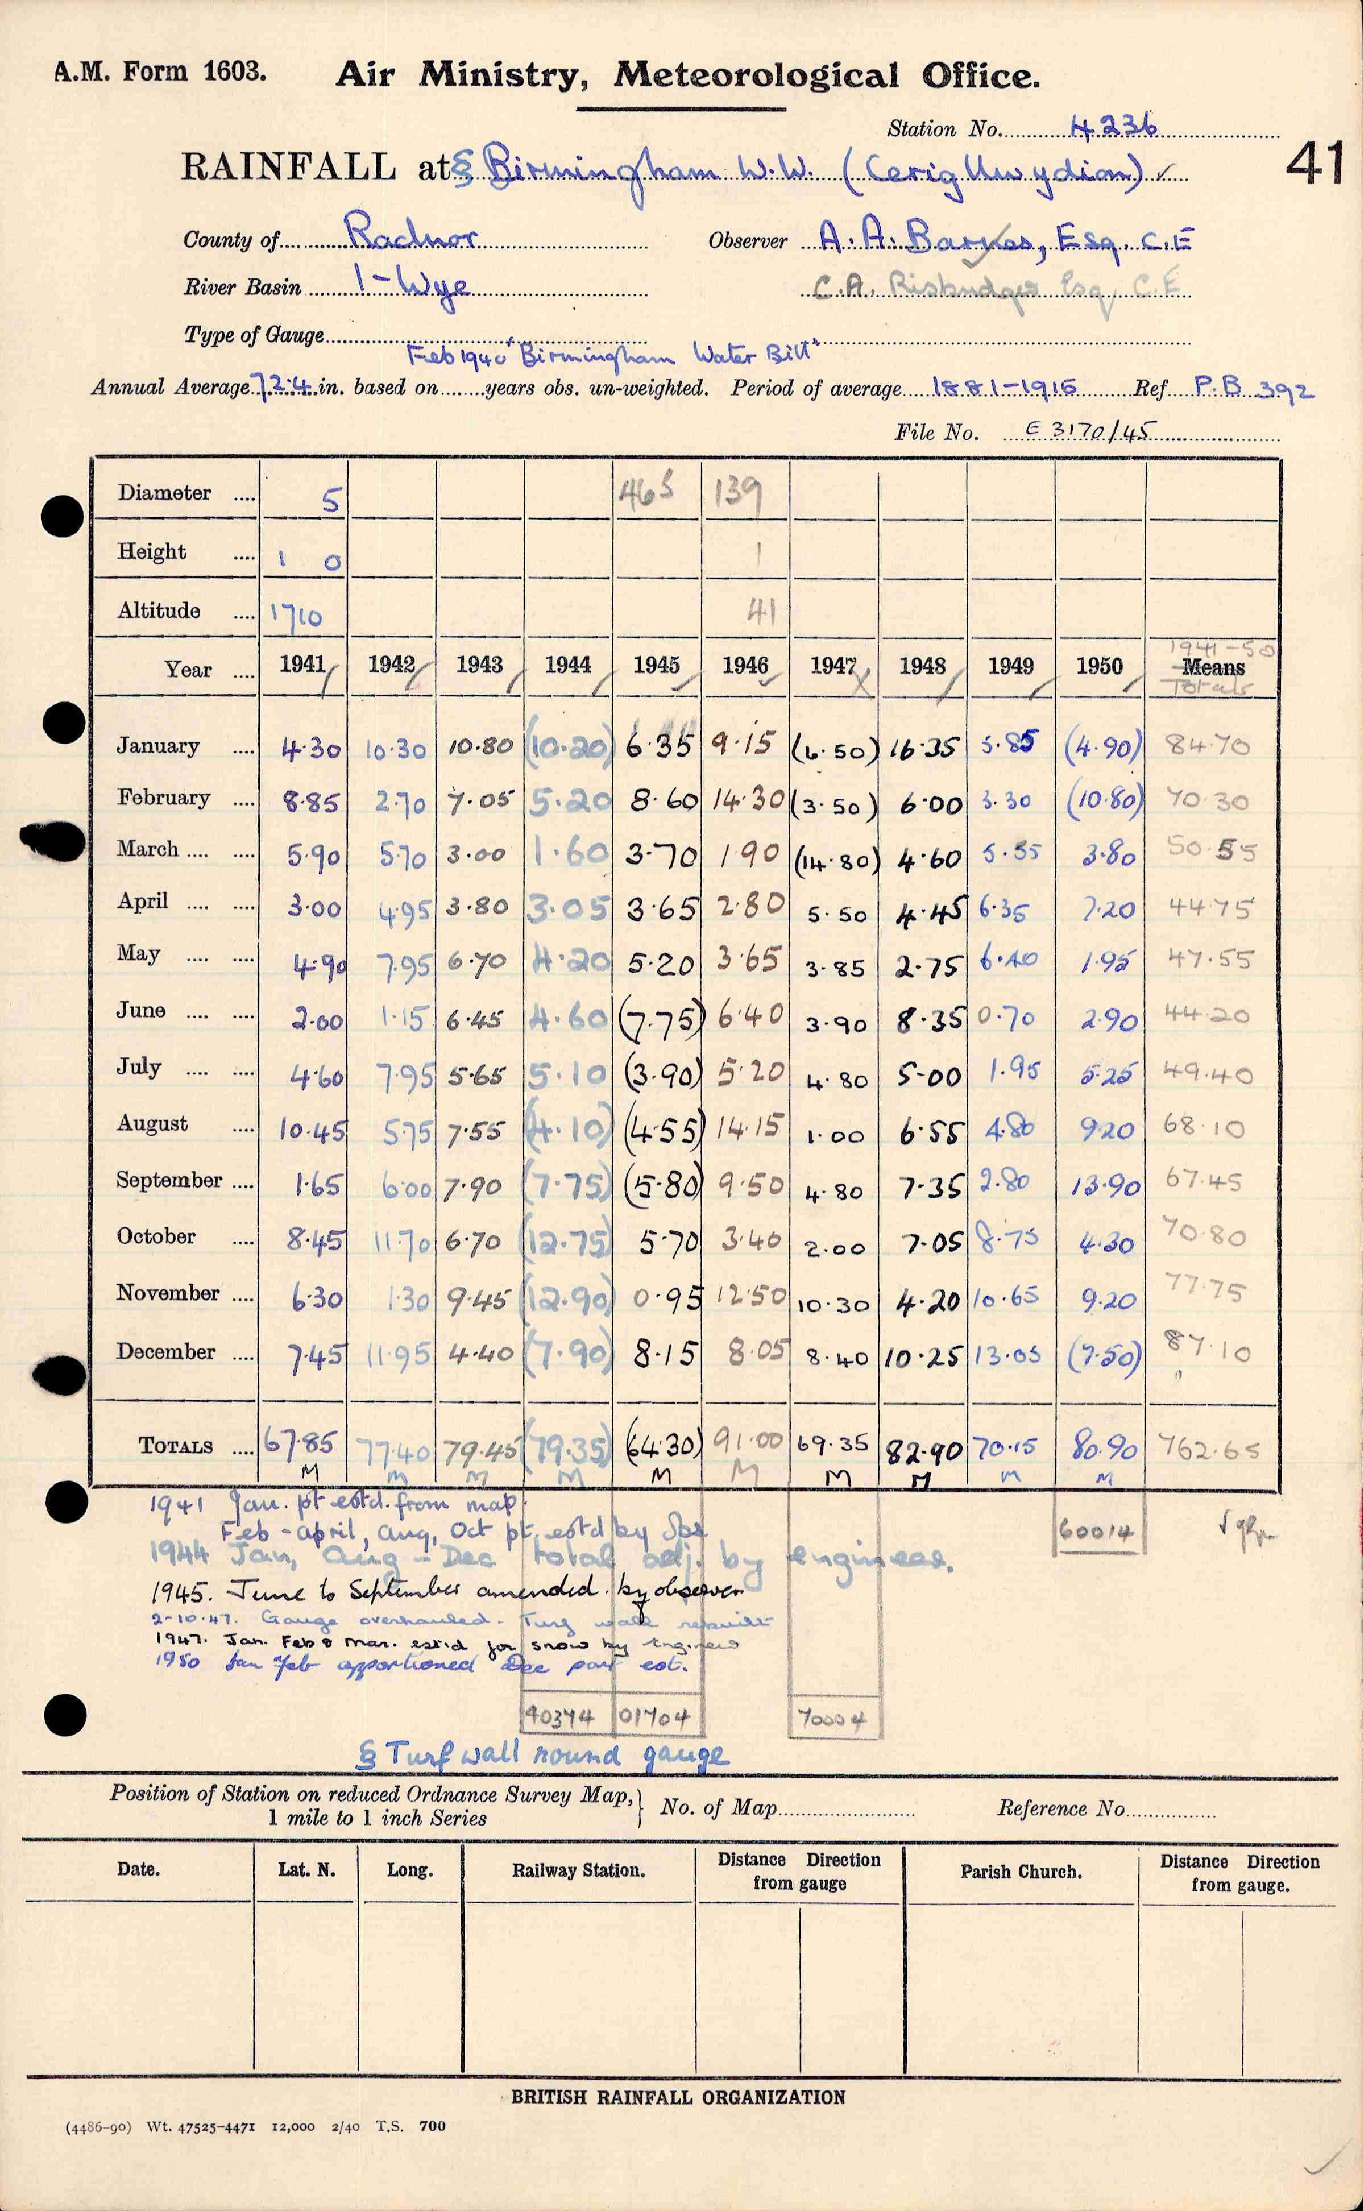 A.M. Form 1603. Air Ministry, Meteorological Office.
Station No. 4236
41
RAINFALL at § Birmingham W.W. (Cerig Llwydion) ✓
County of Radnor Observer A. A. Barnes, Esq. C.E
River Basin 1-Wye C.A. Risbridger Esq. C.E
Type of Gauge
Feb 1940 "Birmingham Water Bill"
Annual Average 72.4 in. based on ...... years obs. un-weighted. Period of average 1881-1915 Ref P.B 392
File No. E 3170/45
Diameter .... 5 465 139
Height .... 1 0 1
Altitude .... 1710 41
1941-50
Year .... 1941 1942 1943 1944 1945 1946 1947 1948 1949 1950 Means
Totals
January .... 4.30 10.30 10.80 (10.20) 6.35 9.15 (6.50) 16.35 5.85 (4.90) 84.70
February .... 8.85 2.70 7.05 5.20 8.60 14.30 (3.50) 6.00 3.30 (10.80) 70.30
March .... .... 5.90 5.70 3.00 1.60 3.70 1.90 (14.80) 4.60 5.55 3.80 50.55
April .... .... 3.00 4.95 3.80 3.05 3.65 2.80 5.50 4.45 6.35 7.20 44.75
May .... .... 4.90 7.95 6.70 4.20 5.20 3.65 3.85 2.75 6.40 1.95 47.55
June .... .... 2.00 1.15 6.45 4.60 (7.75) 6.40 3.90 8.35 0.70 2.90 44.20
July .... .... 4.60 7.95 5.65 5.10 (3.90) 5.20 4.80 5.00 1.95 5.25 49.40
August .... 10.45 5.75 7.55 (4.10) (4.55) 14.15 1.00 6.55 4.80 9.20 68.10
September .... 1.65 6.00 7.90 (7.75) (5.80) 9.50 4.80 7.35 2.80 13.90 67.45
October .... 8.45 11.70 6.70 (12.75) 5.70 3.40 2.00 7.05 8.75 4.30 70.80
November .... 6.30 1.30 9.45 (12.90) 0.95 12.50 10.30 4.20 10.65 9.20 77.75
December .... 7.45 11.95 4.40 (7.90) 8.15 8.05 8.40 10.25 13.05 (7.50) 87.10
TOTALS .... 67.85 77.40 79.45 (79.35) (64.30) 91.00 69.35 82.90 70.15 80.90 762.65
M M M M M M M M M M
1941 Jan. pt estd. from map.
Feb - april, aug, Oct pt. estd by Obs
60014
1944 Jan, Aug - Dec total adj. by engineer.
1945. June to September amended by observer
2-10-47. Gauge overhauled. Turf wall rebuilt
1947. Jan. Feb & Mar. est'd for snow by Engineer
1950 Jan Feb apportioned Dec part est.
90374 01704 70004
§ Turf wall round gauge
Position of Station on reduced Ordnance Survey Map, } No. of Map Reference No.
1 mile to 1 inch Series
Date. Lat. N. Long. Railway Station. Distance Direction from gauge Parish Church. Distance Direction from gauge.
BRITISH RAINFALL ORGANIZATION
(4486-90) Wt. 47525-4471 12,000 2/40 T.S. 700